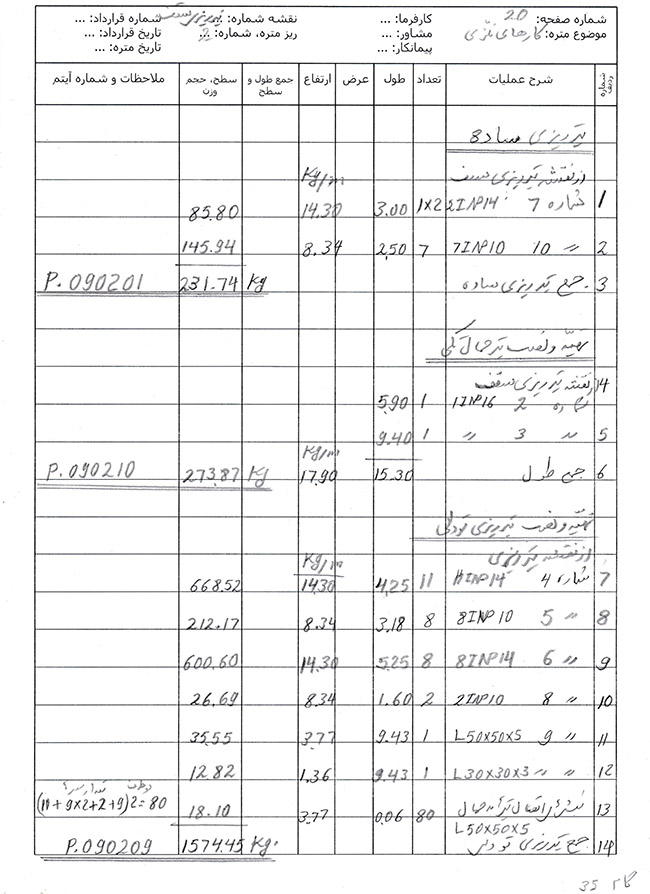 شماره صفحه: 20 کارفرما: ... نقشه شماره: تیرریزی سقف شماره قرارداد: ...
موضوع متره: کارهای فلزی مشاور: ... ریز متره، شماره: 2 تاریخ قرارداد: ...
پیمانکار: ... تاریخ متره: ...
شماره ردیف شرح عملیات تعداد طول عرض ارتفاع جمع طول و سطح سطح، حجم وزن ملاحظات و شماره آیتم
تیرریزی ساده
از نقشه تیرریزی سقف Kg/m
1 شماره 7 2INP14 1x2 3.00 14.30 85.80
2 〃 10 7INP10 7 2.50 8.34 145.94
3 جمع تیرریزی ساده Kg 231.74 P.090201
تهیه و نصب تیر حمال تکی
14 نقشه تیرریزی سقف
شماره 2 1INP16 1 5.90
5 〃 3 〃 1 9.40
Kg/m
6 جمع طول 15.30 17.90 Kg 273.87 P.090210
تهیه و نصب تیرریزی تودلی
از نقشه تیرریزی Kg/m
7 شماره 4 11INP14 11 4.25 14.30 668.52
8 〃 5 8INP10 8 3.18 8.34 212.17
9 〃 6 8INP14 8 5.25 14.30 600.60
10 〃 8 2INP10 2 1.60 8.34 26.69
11 〃 9 L50x50x5 1 9.43 3.77 35.55
12 〃 〃 L30x30x3 1 9.43 1.36 12.82
13 اتصال تیر به حمال 80 0.06 3.77 18.10 (11+9x2+2+9)2=80
L50x50x5
14 جمع تیرریزی تودلی Kg. 1574.45 P.090209
35